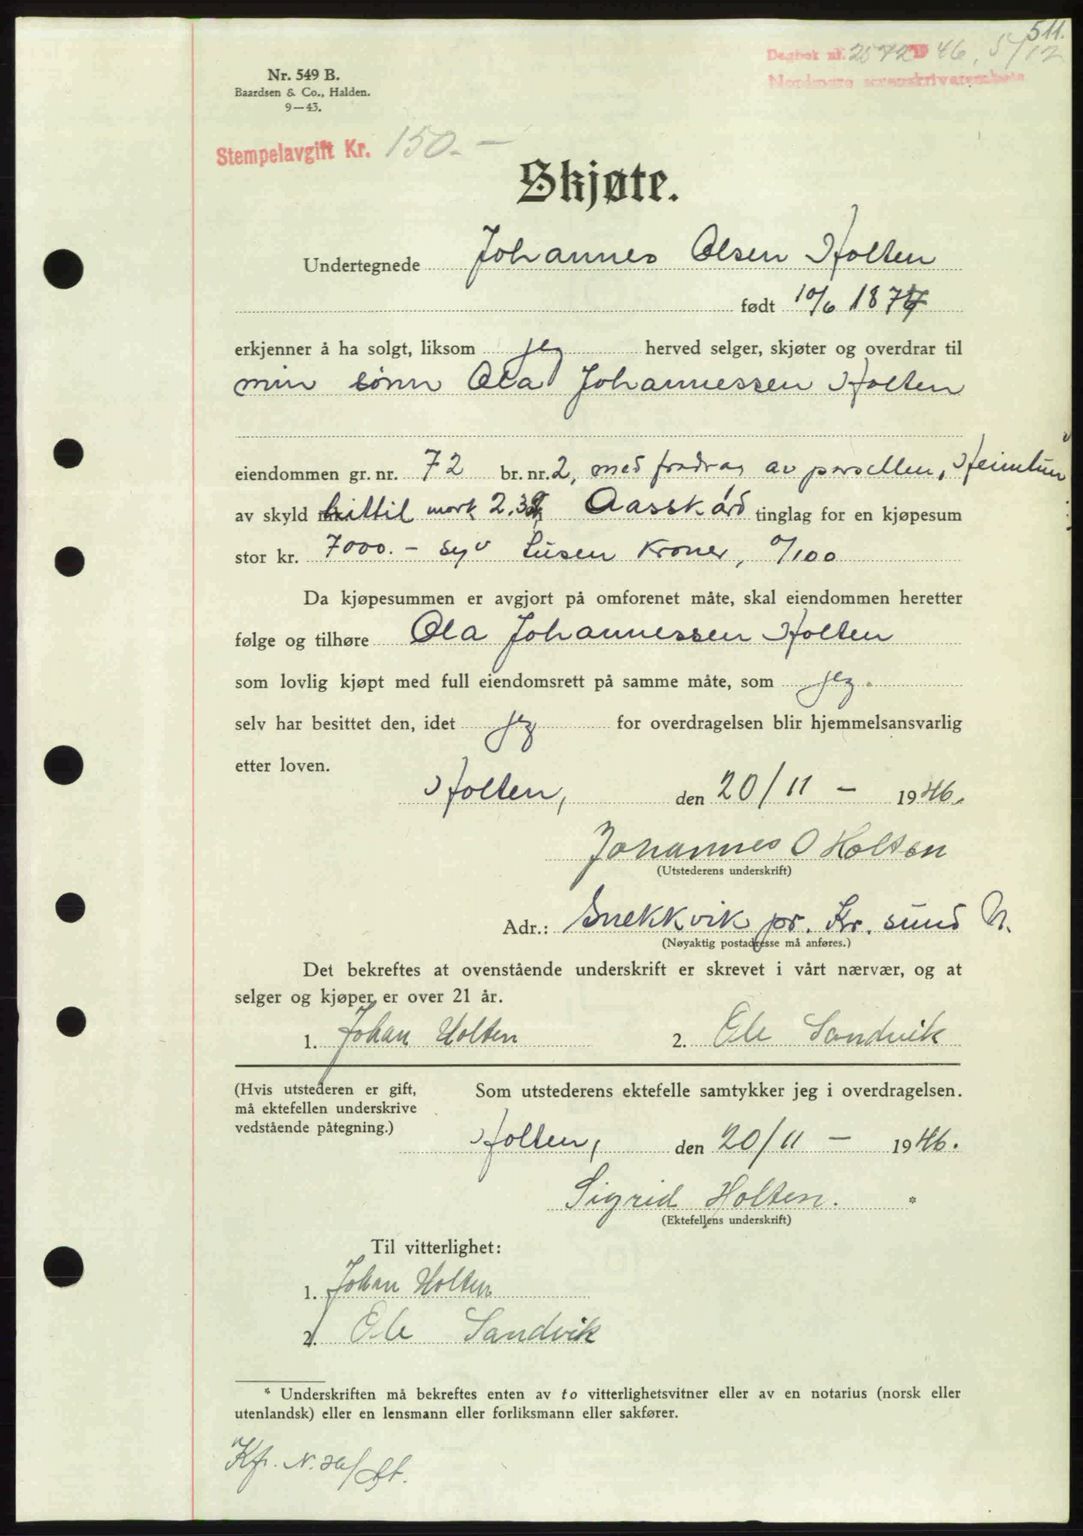 511.
Dagbok nr. 2572 1946, 5/12
Nordmøre sorenskriverembete
Nr. 549 B.
Baardsen & Co., Halden.
9—43.
Stempelavgift Kr. 150.—
Skjøte.
Undertegnede Johannes Olsen Holten
født 10/6 1877
erkjenner å ha solgt, liksom jeg herved selger, skjøter og overdrar til
min sønn Ola Johannessen Holten
eiendommen gr. nr. 72 br. nr. 2, med fradrag av parsellen, "Heimtun"
av skyld hittil mark 2.32 Aasskård tinglag for en kjøpesum
stor kr. 7000.— syv tusen kroner, 0/100
Da kjøpesummen er avgjort på omforenet måte, skal eiendommen heretter
følge og tilhøre Ola Johannessen Holten
som lovlig kjøpt med full eiendomsrett på samme måte, som jeg.
selv har besittet den, idet jeg for overdragelsen blir hjemmelsansvarlig
etter loven.
Holten, den 20/11 — 1946.
Johannes O Holten
(Utstederens underskrift)
Adr.: Snekkvik pr. Kr. sund N.
(Nøyaktig postadresse må anføres.)
Det bekreftes at ovenstående underskrift er skrevet i vårt nærvær, og at
selger og kjøper er over 21 år.
1. Johan Holten 2. Ole Sandvik
(Hvis utstederen er gift, Som utstederens ektefelle samtykker jeg i overdragelsen.
må ektefellen underskrive
vedstående påtegning.)
Holten, den 20/11 — 1946.
Sigrid Holten. *
(Ektefellens underskrift)
Til vitterlighet:
1. Johan Holten
2. Ole Sandvik
* Underskriften må bekreftes enten av to vitterlighetsvitner eller av en notarius (norsk eller
utenlandsk) eller en lensmann eller forliksmann eller sakfører.
Kfr. N.